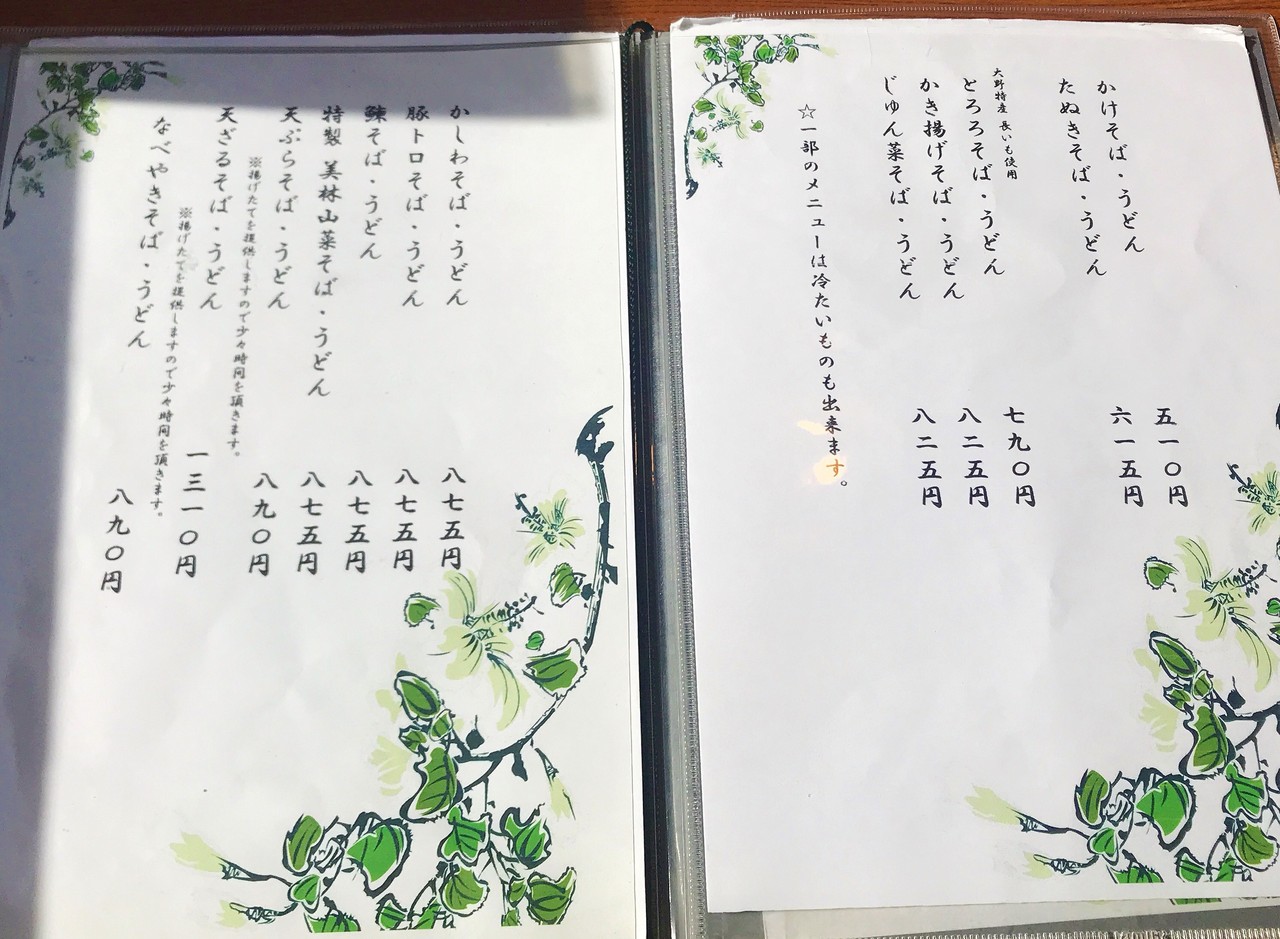 かけそば・うどん
五一〇円
たぬきそば・うどん
六一五円
大野特産 長いも使用
とろろそば・うどん
七九〇円
かき揚げそば・うどん
八二五円
じゅん菜そば・うどん
八二五円
☆一部のメニューは冷たいものも出来ます。
かしわそば・うどん
八七五円
豚トロそば・うどん
八七五円
鰊そば・うどん
八七五円
特製 美林山菜そば・うどん
八七五円
天ぷらそば・うどん
八九〇円
※揚げたてを提供しますので少々時間を頂きます。
天ざるそば・うどん
一三一〇円
※揚げたてを提供しますので少々時間を頂きます。
なべやきそば・うどん
八九〇円